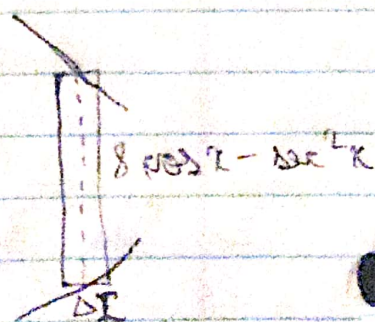 8 cos x - sec²x
Δx